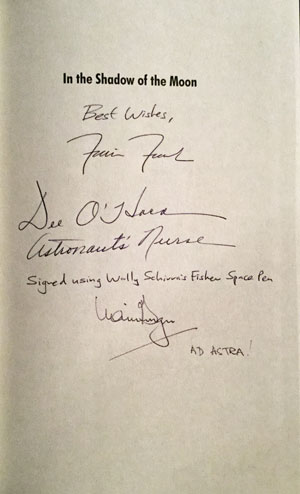 In the Shadow of the Moon
Best Wishes,
Dee O'Hara
Astronauts Nurse
Signed using Wally Schirra's Fisher Space Pen
AD ASTRA!